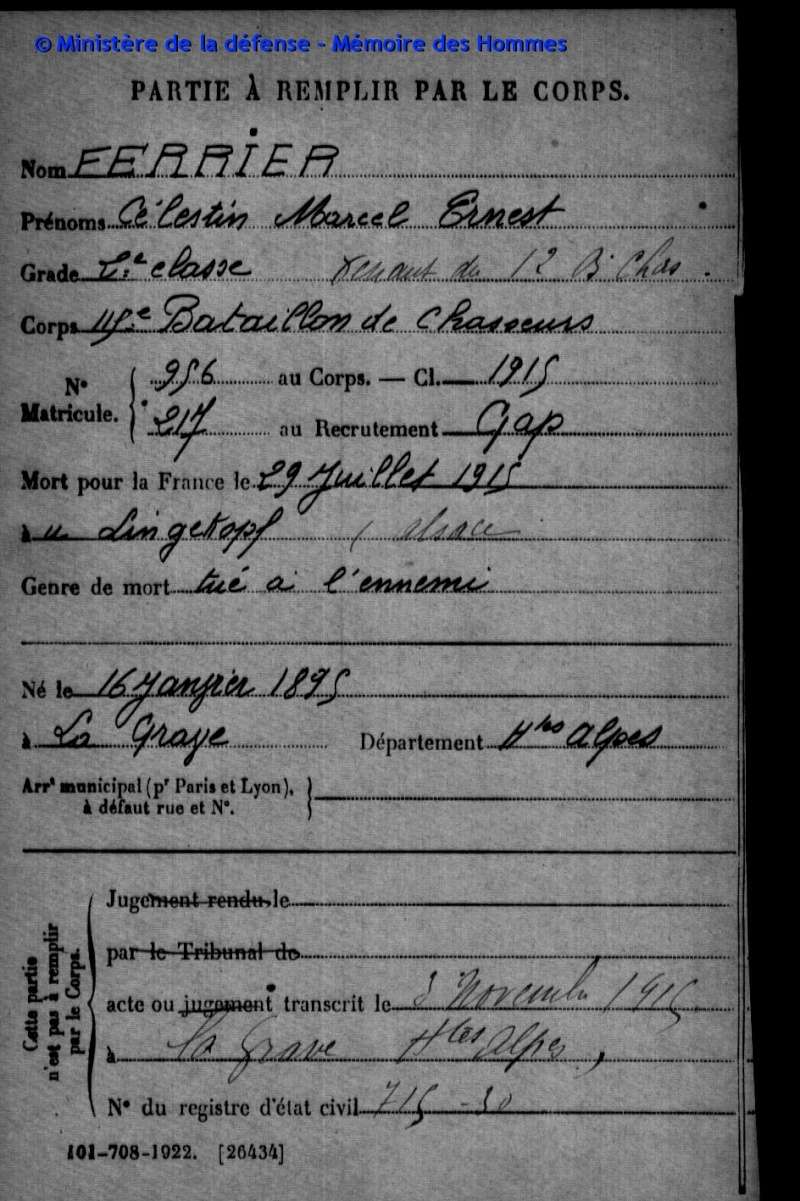 © Ministère de la défense - Mémoire des Hommes
PARTIE À REMPLIR PAR LE CORPS.
Nom FERRIER
Prénoms Célestin Marcel Ernest
Grade 2e classe venant du 12 B. Chas.
Corps 115e Bataillon de Chasseurs
N° Matricule. 956 au Corps. — Cl. 1915
217 au Recrutement Gap
Mort pour la France le 29 Juillet 1915
à u Lingekopf (Alsace
Genre de mort tué à l'ennemi
Né le 16 Janvier 1895
à La Grave Département Htes Alpes
Arrt municipal (pr Paris et Lyon),
à défaut rue et N°.
Cette partie n'est pas à remplir par le Corps.
Jugement rendu le
par le Tribunal de
acte ou jugement transcrit le 3 Novembre 1915
à la Grave Htes Alpes,
N° du registre d'état civil 715-30
101-708-1922. [26434]